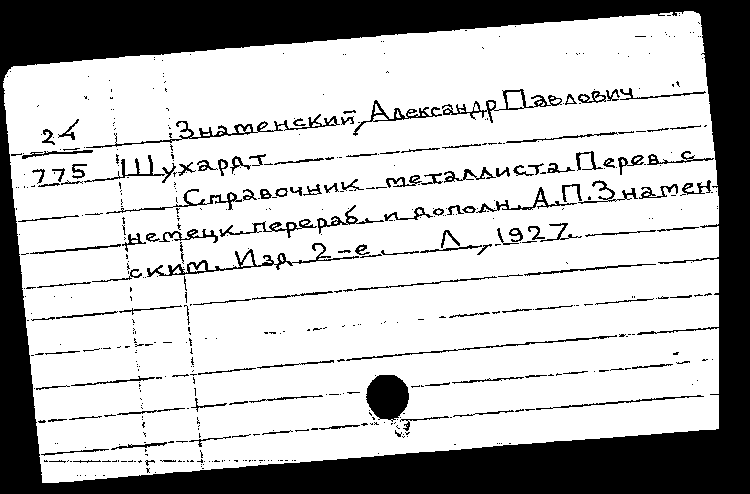 Знаменский, Александр Павлович
24
775
Шухардт
Справочник металлиста. Перев. с
немецк. перераб. и дополн. А.П. Знамен-
ским. Изд. 2-е. Л., 1927.